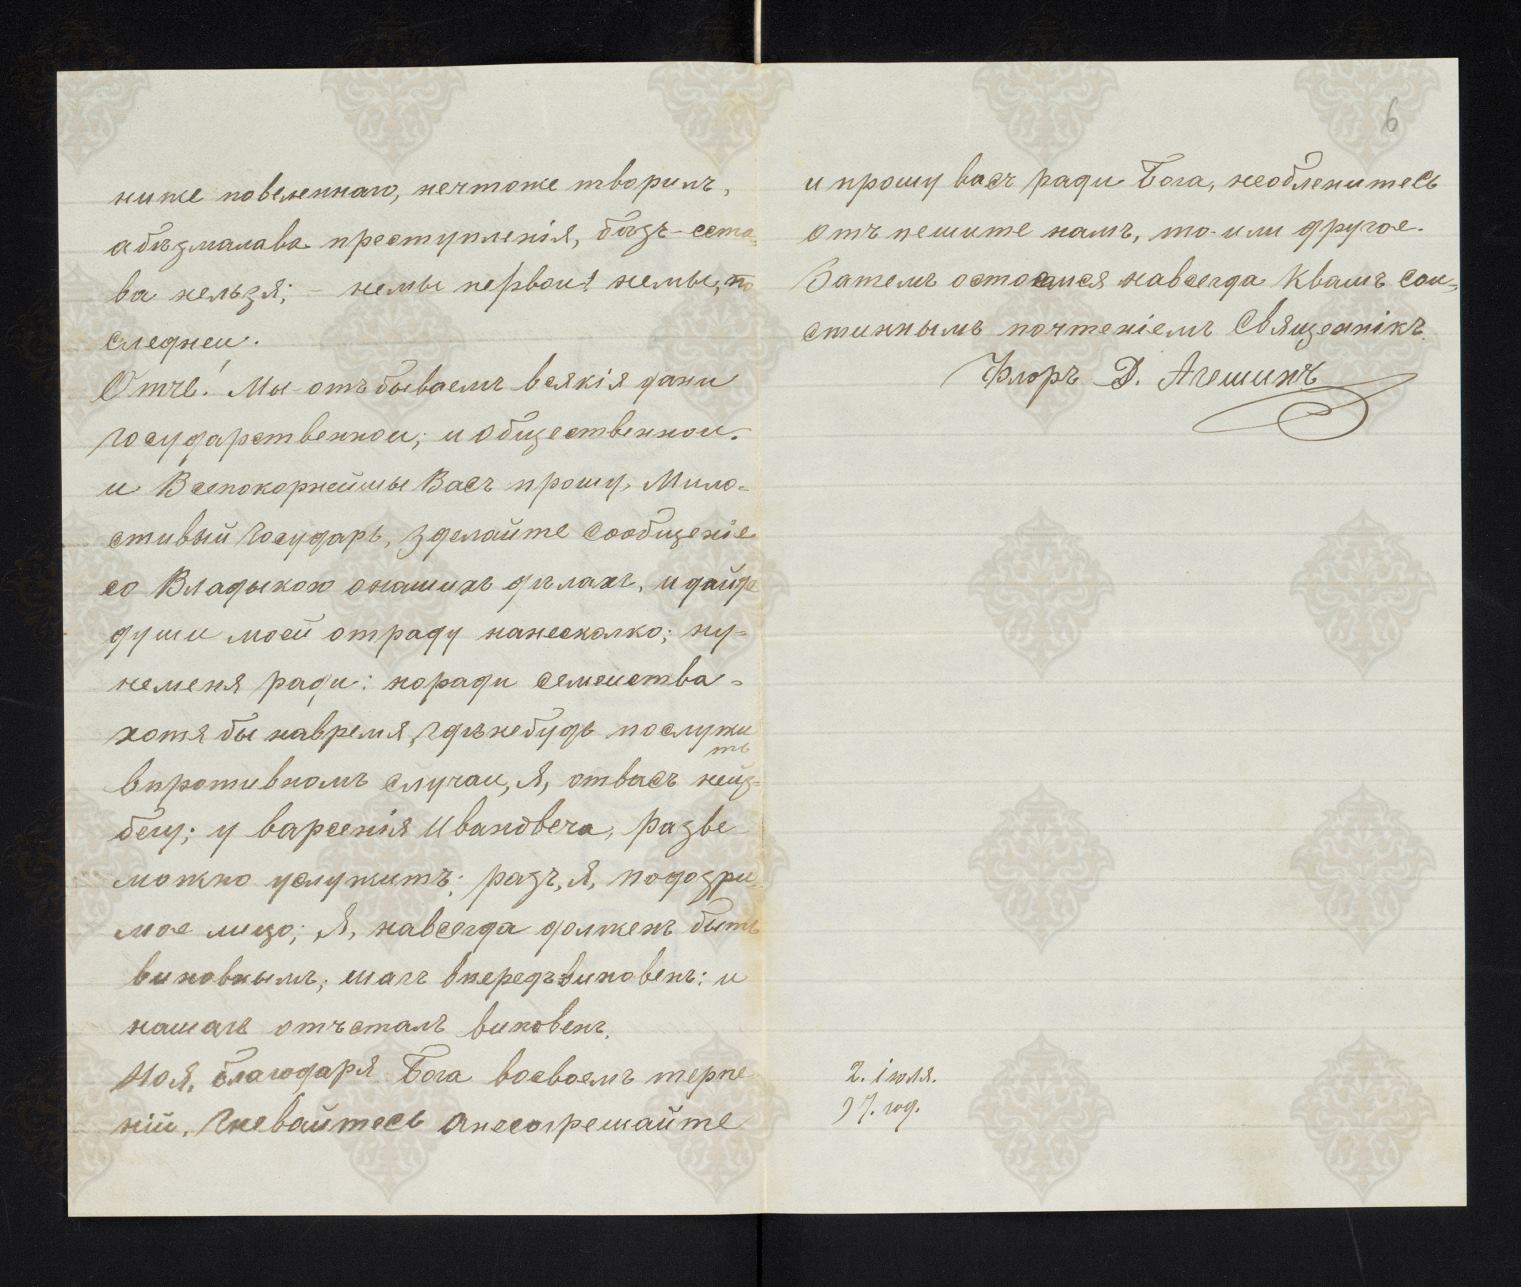 ниже повеленнаго, нечтоже творилъ,
абѣзмалава преступленія, бѣзъ-сста-
ва нельзя; - немы первои! немы, по
следнеи.
Отче! Мы-отъбываемъ всякія дани
государственнои; и общественнои.
и Всепокорнейшы Васъ прошу, Мило-
стивый государь, зделайте сообщеніе
со Владыкою онашихъ дѣлахъ, и дайте
души моей отраду нанесколко; ну-
неменя ради: норади семеиства-
хотя бы навремя, гдѣнебудь послужи
ть
впротивномъ случаи, Я, отвасъ неиз-
бегу; у варсенія Ивановеча, разве
можно услужитъ; разъ, Я, подозри-
мое лицо; Я, навсегда долженъ быть
виновнымъ; шагъ впередъ виновенъ: и
нашагъ отъсталъ виновенъ.
Но я, благодаря Бога восвоемъ терпе
ній, гневайтесь анесогрешайте
6
и прошу васъ ради Бога, необленитесь
отъ пешите намъ, то-или другое.
Затемъ остоюмся навсегда Квамъ сои-
стиннымъ почтеніемъ Священникъ
Флоръ Д. Агешинъ
2. іюля.
97. год.